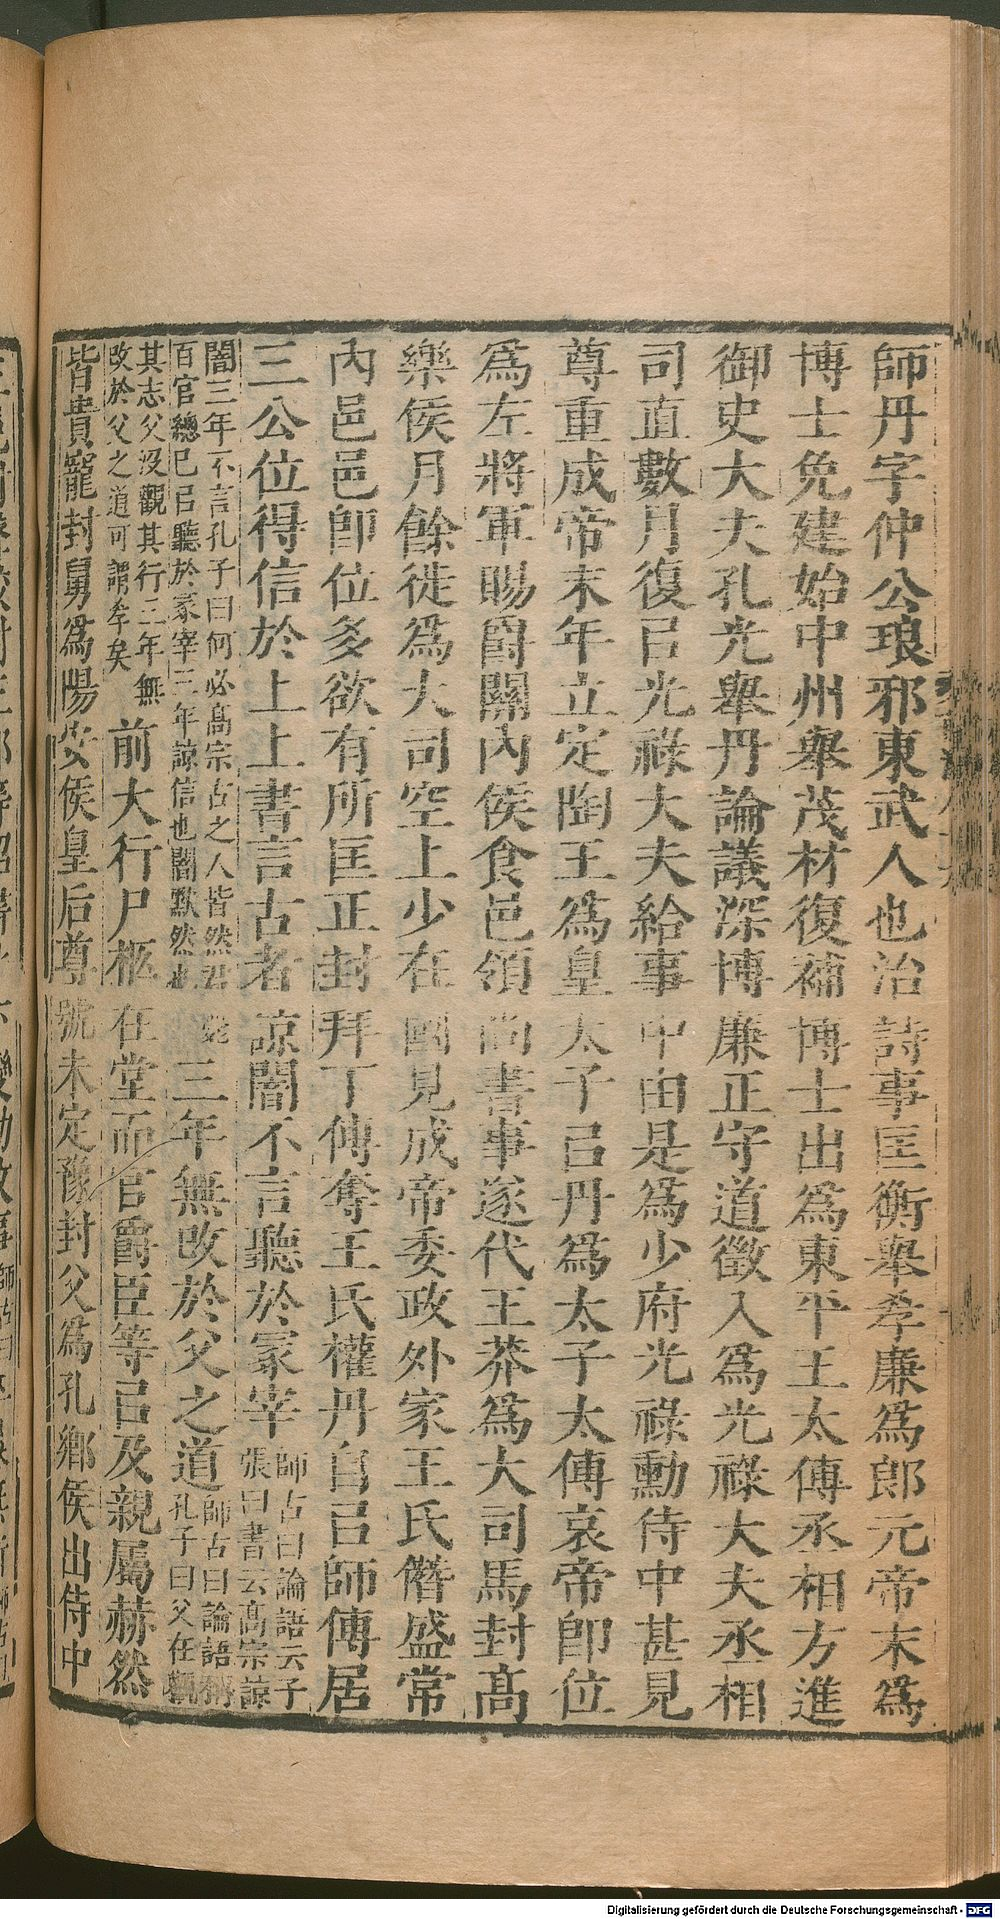 師丹字仲公琅邪東武人也治詩事匡衡舉孝廉爲郎元帝末爲
博士免建始中州舉茂材復補博士出爲東平王太傅丞相方進
御史大夫孔光舉丹論議深博廉正守道徵入爲光祿大夫丞相
司直數月復㠯光祿大夫給事中由是爲少府光祿勳侍中甚見
尊重成帝末年立定陶王爲皇太子㠯丹爲太子太傅哀帝即位
爲左將軍賜爵關內侯食邑領尚書事遂代王莽爲大司馬封高
樂侯月餘徙爲大司空上少在國見成帝委政外家王氏僭盛常
內邑邑即位多欲有所匡正封拜丁傅奪王氏權丹自㠯師傅居
三公位得信於上上書言古者諒闇不言聽於冢宰師古曰論語云子
張曰書云高宗諒
闇三年不言孔子曰何必高宗古之人皆然君
百官總已㠯聽於冢宰三年諒信也闇默然也三年無改於父之道師古曰論語稱
孔子曰父在觀
其志父沒觀其行三年無
改於父之道可謂孝矣前大行尸柩在堂而官爵臣等㠯及親屬赫然
皆貴寵封舅爲陽安侯皇后尊號未定豫封父爲孔鄉侯出侍中
Digitalisierung gefördert durch die Deutsche Forschungsgemeinschaft - DFG